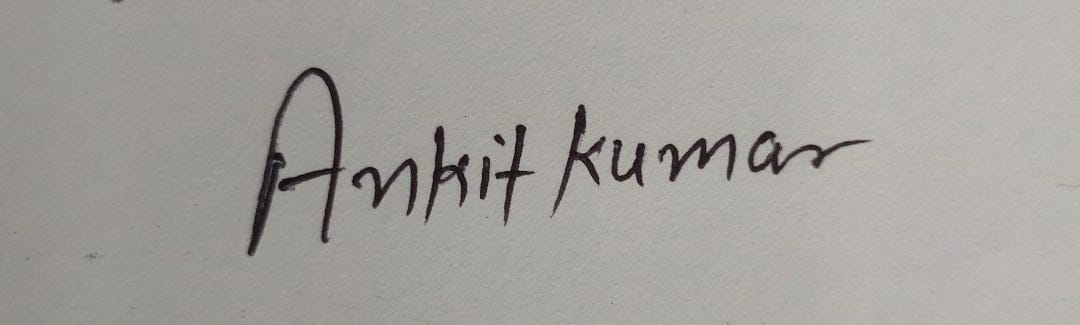 Ankit kumar